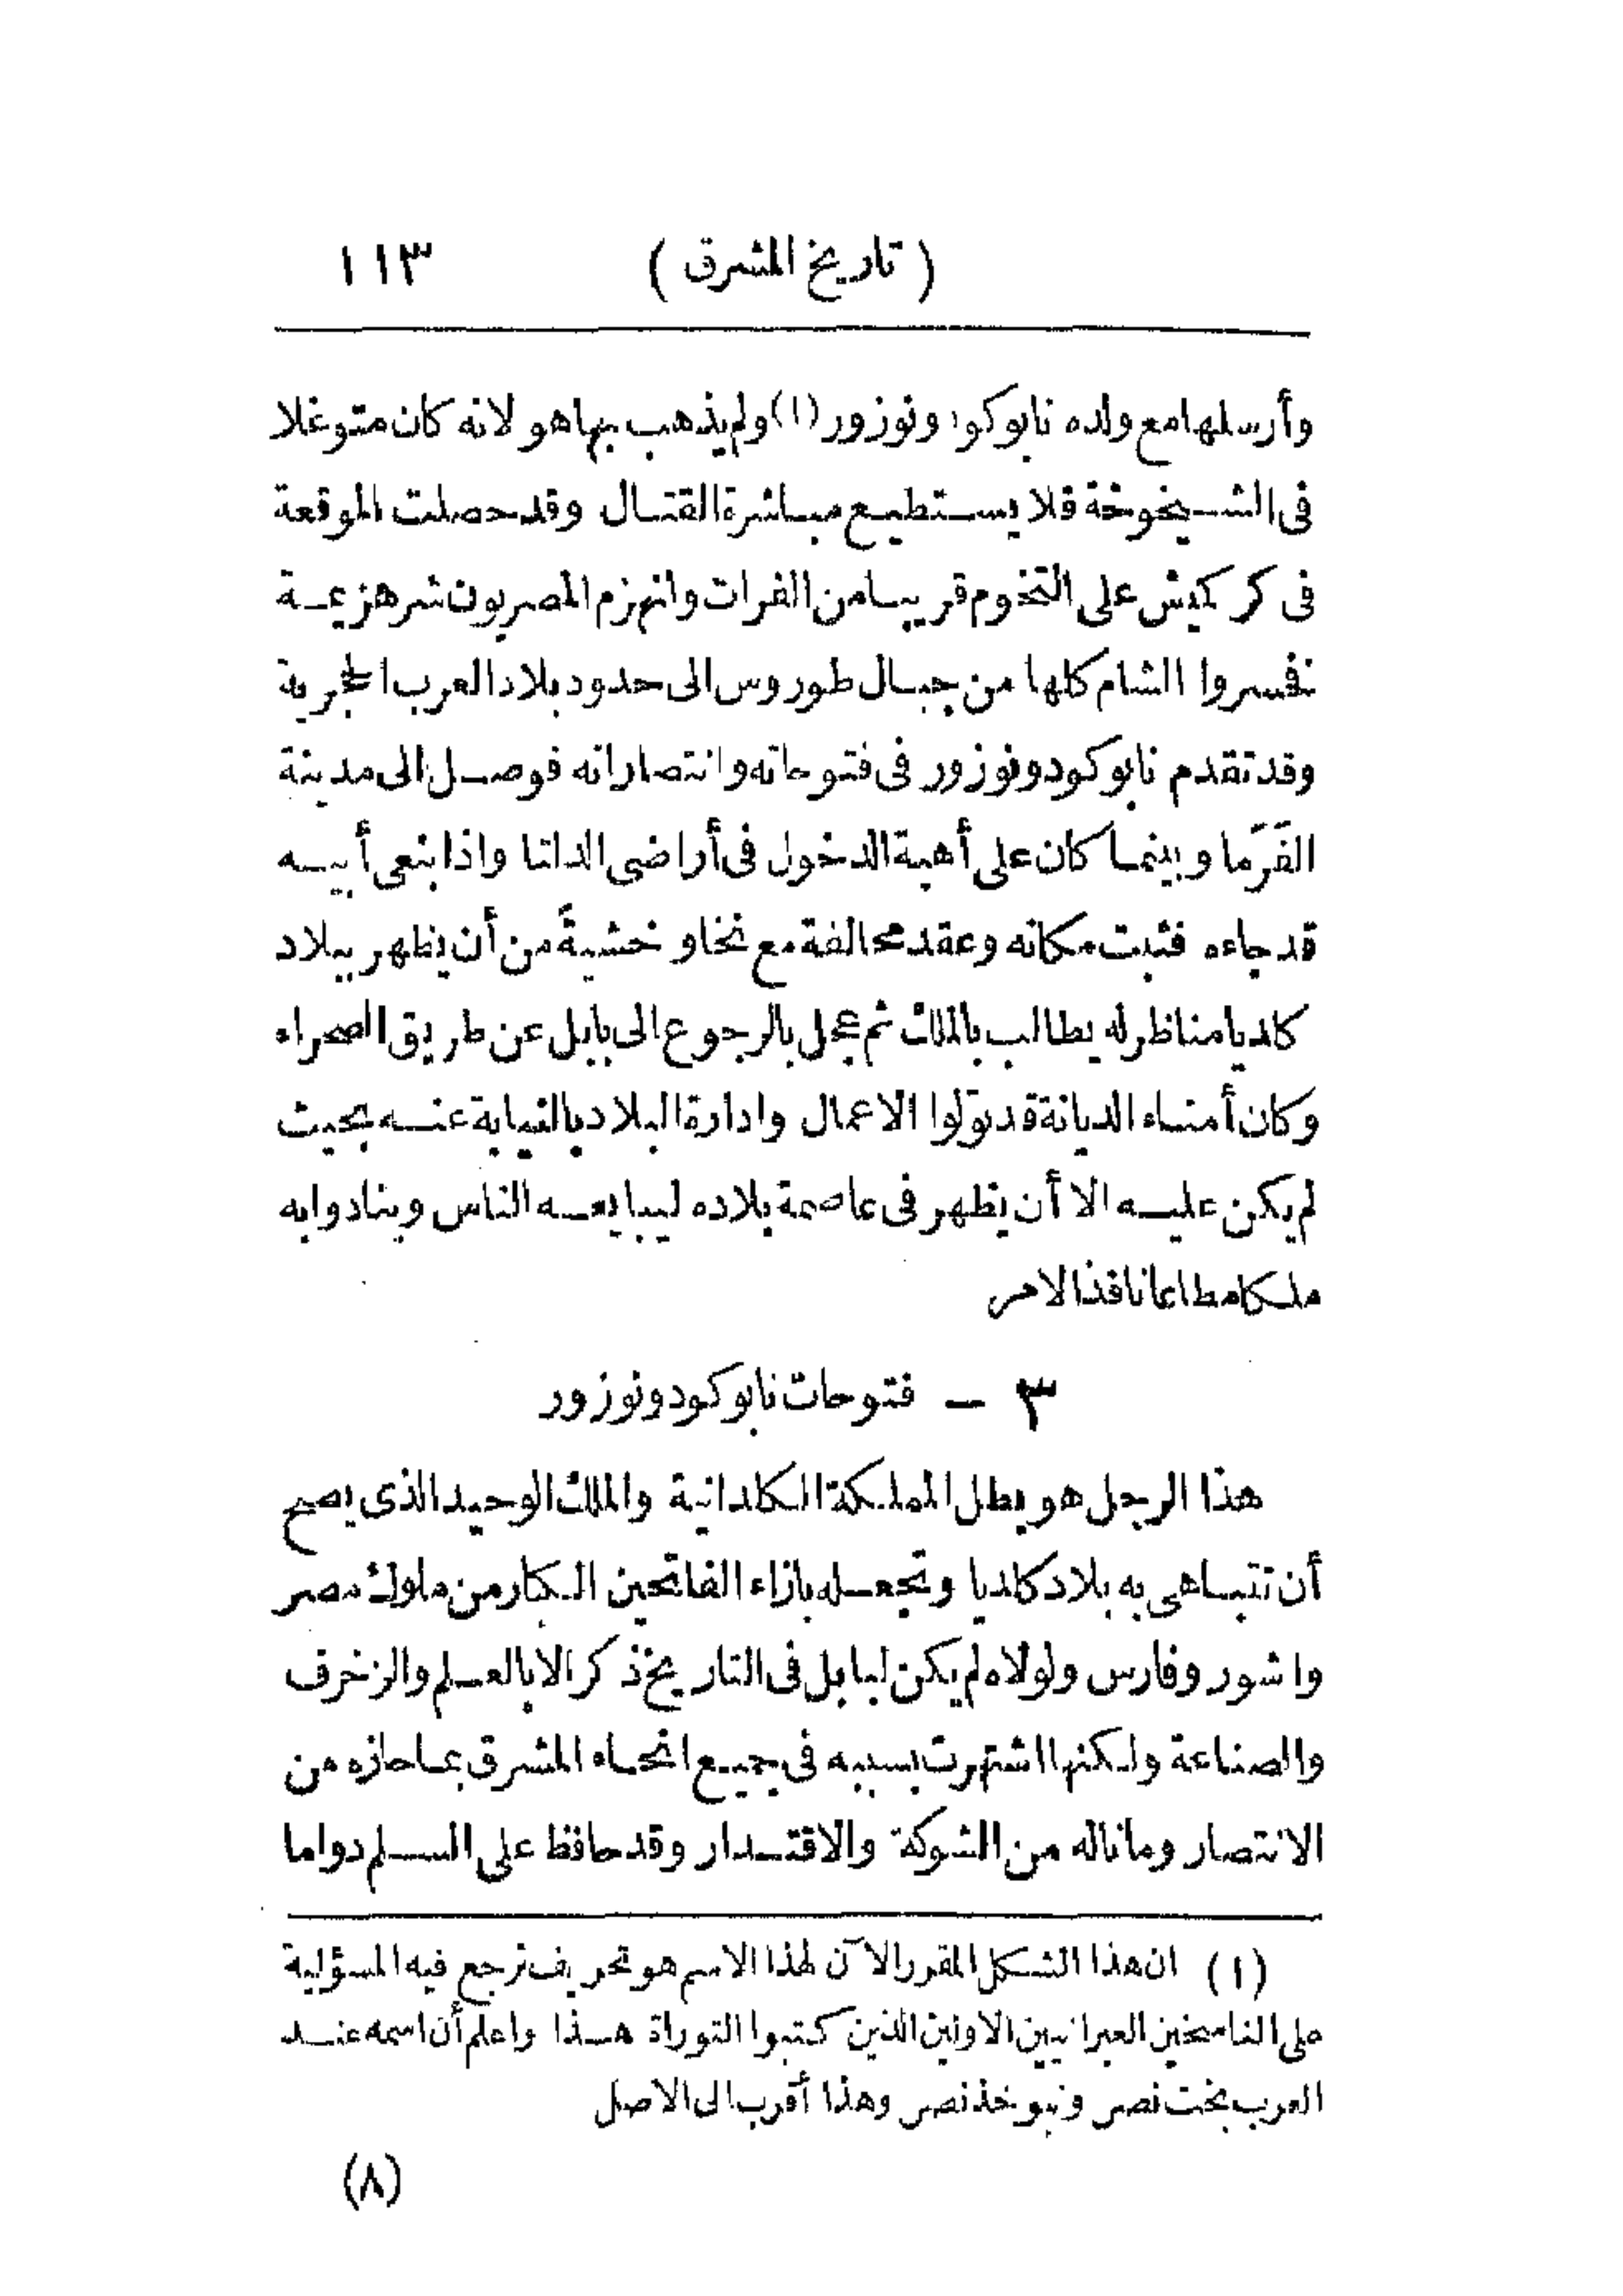 ( تاريخ المشرق ) ١١٣
وأرسلها مع ولده نابوكودونوزور (١) ولم يذهب بها هو لانه كان متوغلا
فى الشيخوخة فلا يستطيع مباشرة القتال وقد حصلت الموقعة
فى كركميش على التخوم قريبا من الفرات وانهزم المصريون شر هزيمة
نفسروا الشام كلها من جبال طوروس الى حدود بلاد العرب الحجرية
وقد تقدم نابوكودونوزور فى فتوحاته وانتصاراته فوصل الى مدينة
الفَرَما وبينما كان على أهبة الدخول فى أراضى الدلتا واذا بنعى أبيه
قد جاءه فثبت مكانه وعقد محالفة مع نخاو خشيةً من أن يظهر ببلاد
كلديا مناظر له يطالب بالملك ثم عجل بالرجوع الى بابل عن طريق الصحراء
وكان أمناء الديانة قد توَلوا الاعمال وادارة البلاد بالنيابة عنه بحيث
لم يكن عليه الا أن يظهر فى عاصمة بلاده ليبايعه الناس وينادوا به
ملكا مطاعا نافذ الامر
٣ – فتوحات نابوكودونوزور
هذا الرجل هو بطل المملكة الكلدانية والملك الوحيد الذى يصح
أن تتباهى به بلاد كلديا وتجعله بازاء الفاتحين الكبار من ملوك مصر
واشور وفارس ولولاه لم يكن لبابل فى التاريخ ذكر الا بالعلم والزخرف
والصناعة ولكنها اشتهرت بسببه فى جميع انحاء المشرق بما حازه من
الانتصار وما ناله من الشوكة والاقتدار وقد حافظ على السلم دواما
(١) ان هذا الشكل المقرر الآن لهذا الاسم هو تحريف ترجع فيه المسؤلية
على الناسخين العبرانيين الاولين الذين كتبوا التوراة هذا واعلم أن اسمه عند
العرب بخت نصر ونبوخذنصر وهذا أقرب الى الاصل
(٨)